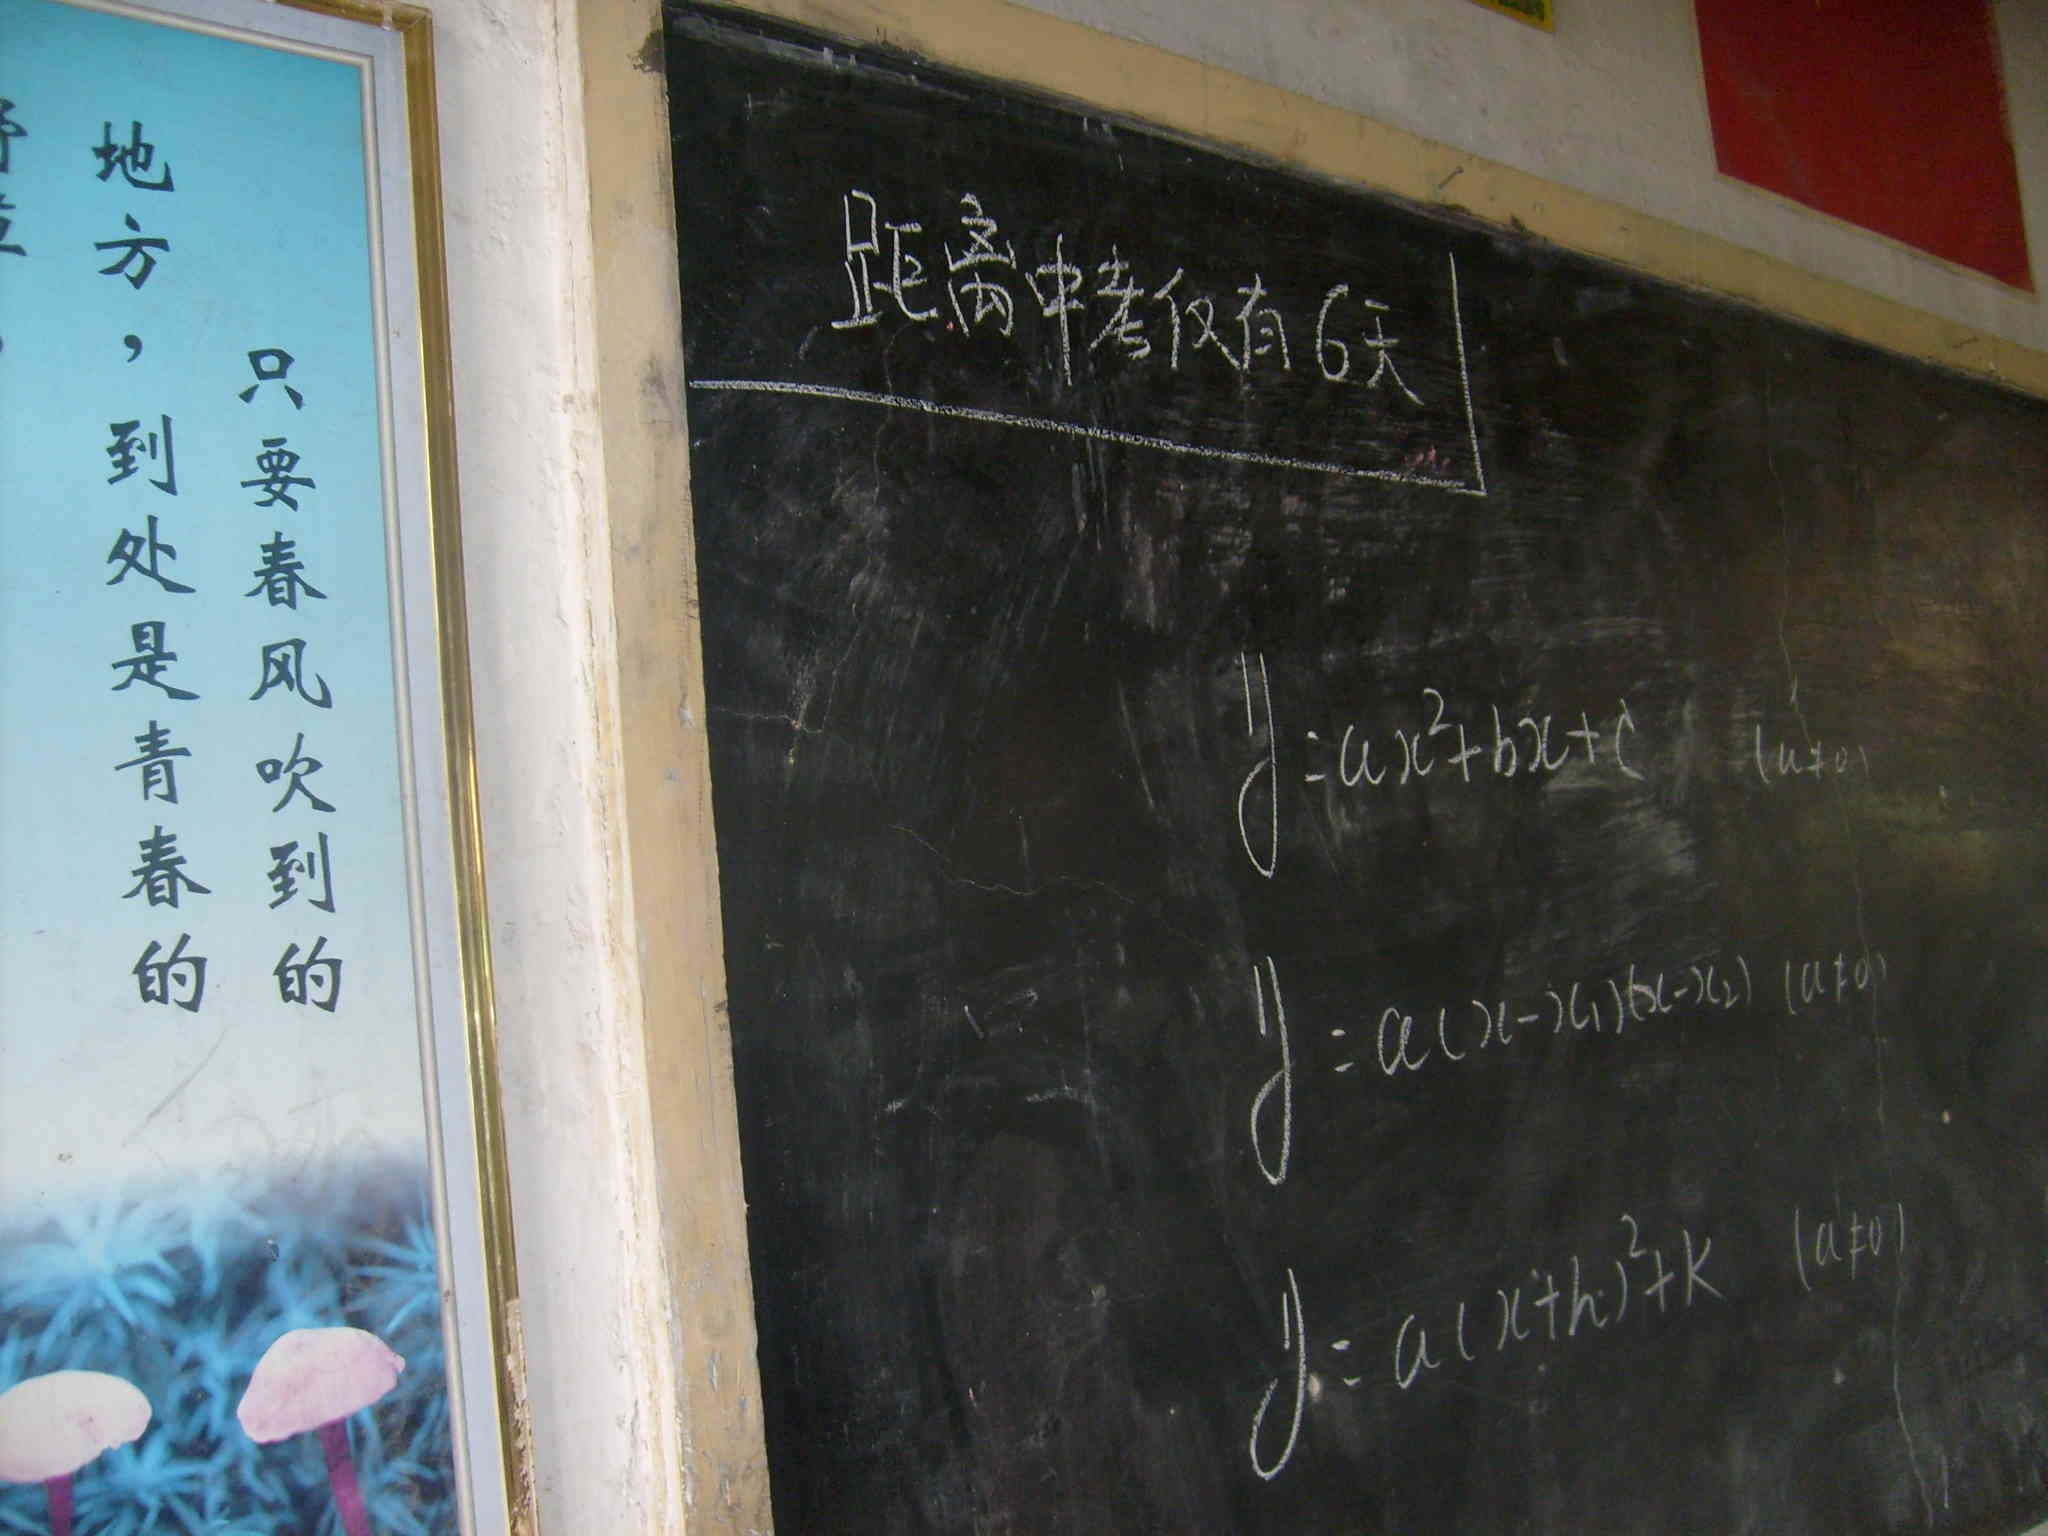 只要春风吹到的
地方，到处是青春的
距离中考仅有6天
y=ax²+bx+c (a≠0)
y=a(x-x₁)(x-x₂) (a≠0)
y=a(x+h)²+k (a≠0)